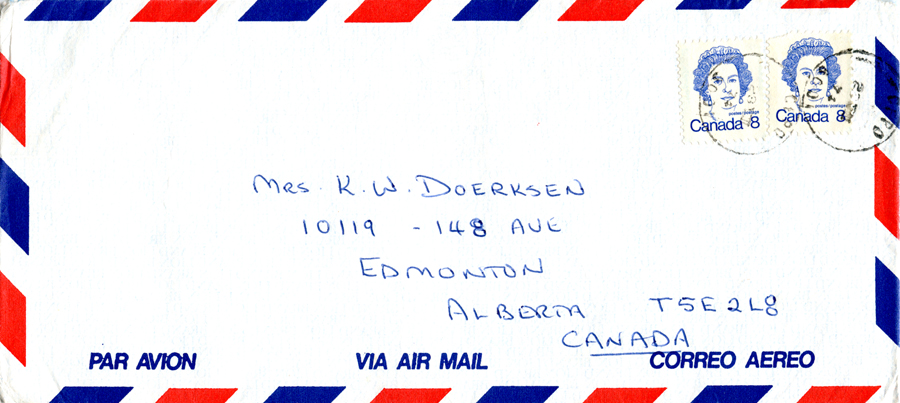 postes/postage
Canada 8
postes/postage
Canada 8
Mrs. K. W. DOERKSEN
10119 - 148 AVE
EDMONTON
ALBERTA T5E2L8
CANADA
PAR AVION VIA AIR MAIL CORREO AEREO